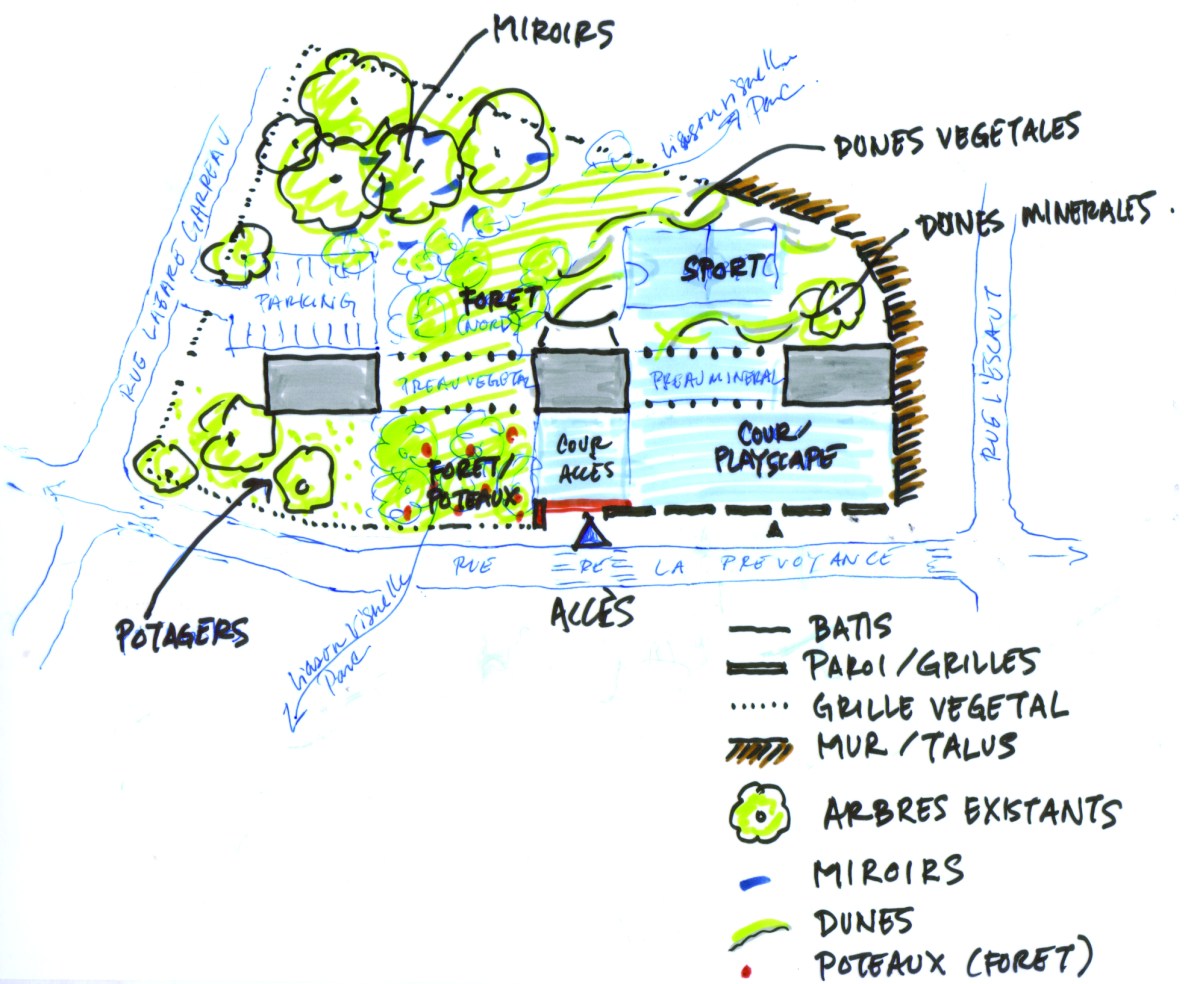 MIROIRS
liason visuelle
Parc
DUNES VEGETALES
DUNES MINERALES.
RUE LAZARE GARREAU
SPORT
PARKING
FORET
(NORD)
RUE L'ESCAUT
PREAU VEGETAL
PREAU MINERAL
COUR
ACCÈS
COUR/
PLAYSCAPE
FORET/
POTEAUX
RUE DE LA PREVOYANCE
ACCÈS
POTAGERS
liason visuelle
Parc
BATIS
PAROI/GRILLES
GRILLE VEGETAL
MUR/TALUS
ARBRES EXISTANTS
MIROIRS
DUNES
POTEAUX (FORET)